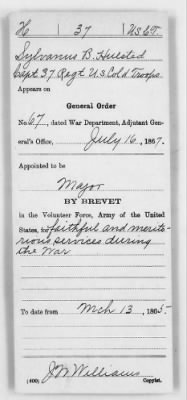 H 37 U.S.C.T.
Sylvanus B. Husted
Capt. 37 Regt U.S. Cold Troops.
Appears on
General Order
No. 67, dated War Department, Adjutant Gen-
eral's Office, July 16, 1867.
Appointed to be
Major
BY BREVET
in the Volunteer Force, Army of the United
States, for faithful and merito-
rious services during
the War
To date from Mch 13, 1865.
J W Williams
(400) Copyist.